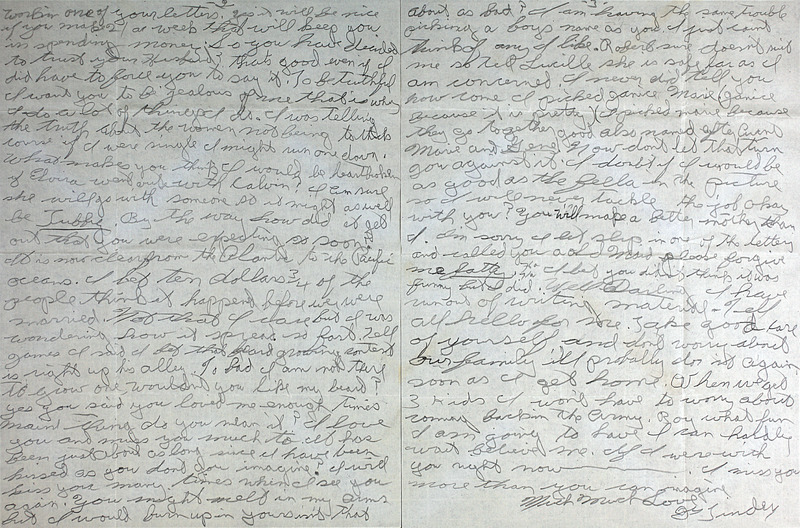 2
work in one of your letters, yes it will be nice
if you make 21 a week that will keep you
in spending money. So you have decided
to trust your Husband? that's good even if I
did have to force you to say it. To be truthful
I want you to be jealous of me that is why
I do a lot of things I do. I was telling
the truth about the women not being to thick
course if I were single I might run one down.
What makes you think I would be heartbroken
if Elvira went out with Calvin? I am sure
she will go with someone so it might as well
be Tubby. By the way how did it get
out that you were expecting so soon
it is now clear from the Atlantic to the Pacific
oceans. I bet ten dollars 3/4 of the
people think it happened before we were
married. Not that I care but I was
wondering how it spread so fast. Tell
James I said I bet that beard growing contest
is right up his alley. To bad I am not there
to grow one wouldn't you like my beard?
yes you said you loved me enough times
main thing do you mean it? I love
you and miss you much to. It has
been just about as long since I have been
kissed as you dont you imagine? I will
kiss you many times when I see you
again. You might melt in my arms
but I would burn up in yours isn't that
3
about as bad? I am having the same trouble
picking a boys name as you I just cant
think of any I like. Robert sure doesn't suit
me so tell Lucille she is safe far as I
am concerned. I never did tell you
how come I picked Janice Marie (Janice
because it is pretty) (I picked marie because
they go together good also named after Aunt
Marie and Gene) Now dont let that turn
you against it. I doubt if I would be
as good as the fella in the picture
so I will never tackle the job okay
with you? You will make a better mother than
I. Im sorry I let slip in one of the letters
and called you a old maid please forgive
me I bet you didn't think it was
funny but I did. Well Darling I have
run out of writing material. Tell
all hello for me. Take good care
of yourself and dont worry about
our family ill probably do not again
soon as I get home. When we get
3 kids I wont have to worry about
coming back in the Army. Boy what fun
I am going to have I can hardly
wait believe me. If I were with
you right now . I miss you
more than you can imagine
Much Much Love